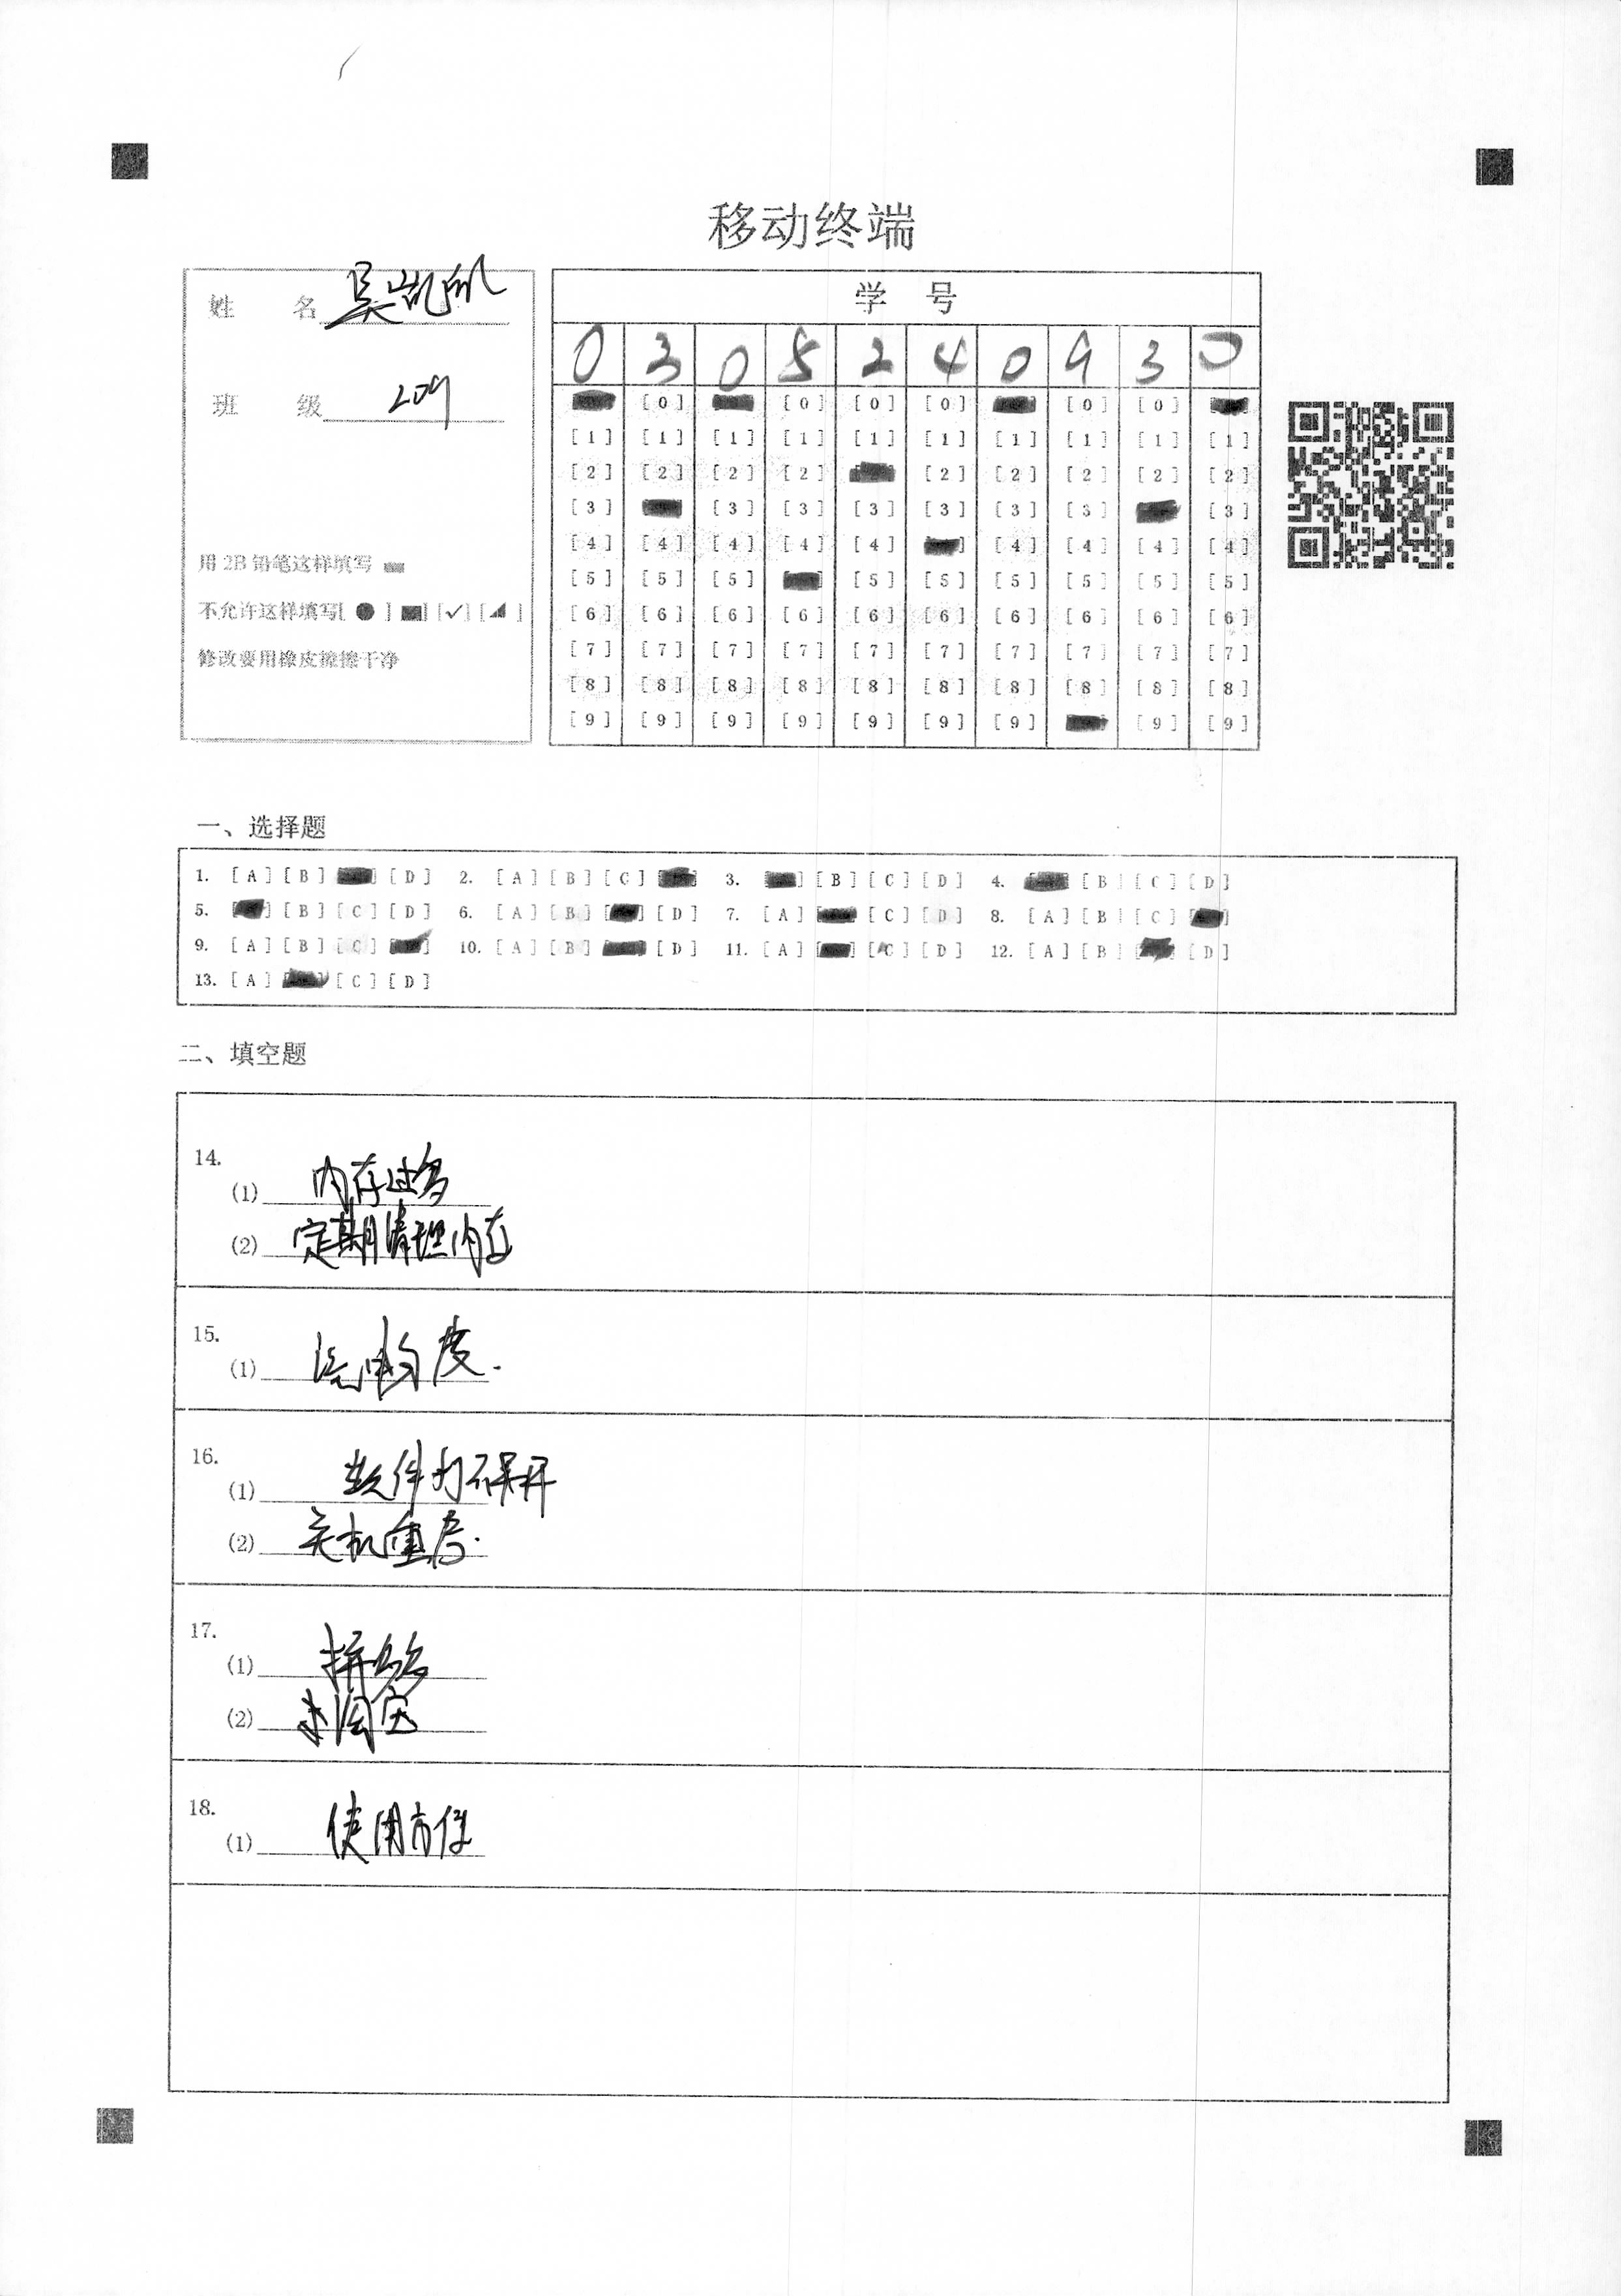 移动终端
姓 名 吴凯帆
班 级 209
用 2B 铅笔这样填写
不允许这样填写[ ● ] [✓] [ ]
修改要用橡皮擦擦干净
学 号
0 3 0 5 2 4 0 9 3 0
[0] [0] [0] [0] [0] [0]
[1] [1] [1] [1] [1] [1] [1] [1] [1] [1]
[2] [2] [2] [2] [2] [2] [2] [2] [2]
[3] [3] [3] [3] [3] [3] [3] [3]
[4] [4] [4] [4] [4] [4] [4] [4] [4]
[5] [5] [5] [5] [5] [5] [5] [5] [5]
[6] [6] [6] [6] [6] [6] [6] [6] [6] [6]
[7] [7] [7] [7] [7] [7] [7] [7] [7] [7]
[8] [8] [8] [8] [8] [8] [8] [8] [8] [8]
[9] [9] [9] [9] [9] [9] [9] [9] [9]
一、选择题
1. [A] [B] [D] 2. [A] [B] [C] 3. [B] [C] [D] 4. [B] [C] [D]
5. [B] [C] [D] 6. [A] [B] [D] 7. [A] [C] [D] 8. [A] [B] [C]
9. [A] [B] [C] 10. [A] [B] [D] 11. [A] [C] [D] 12. [A] [B] [D]
13. [A] [C] [D]
二、填空题
14.
(1) 内存过多
(2) 定期清理内存
15.
(1) 流畅度.
16.
(1) 软件打不开
(2) 关机重启.
17.
(1) 拼多多
(2) 淘宝
18.
(1) 使用方便